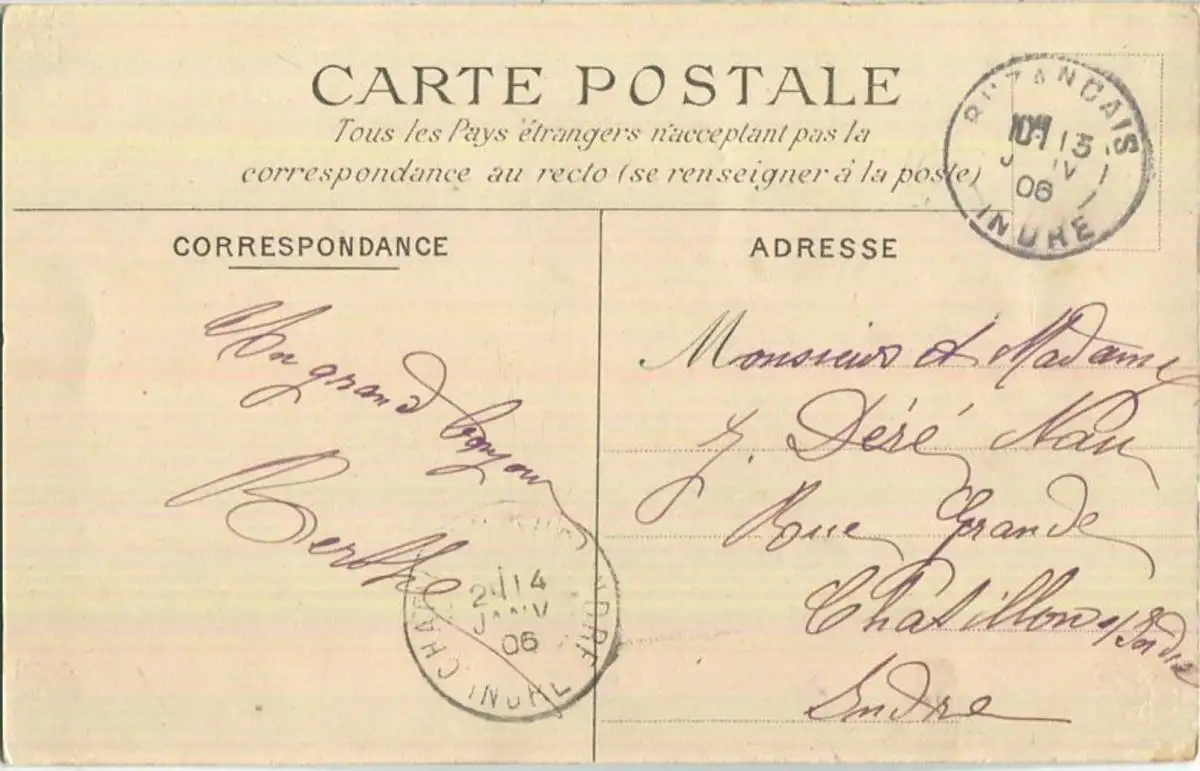 CARTE POSTALE
Tous les Pays étrangers n'acceptant pas la
correspondance au recto (se renseigner à la poste)
BUZANCAIS
10M 13
JANV
06
INDRE
CORRESPONDANCE
ADRESSE
Un grand bonjour
Berthe
Monsieur et Madame
J. Déré Nau
Rue Grande
Châtillon s/Indre
Indre
14
JANV
06
INDRE